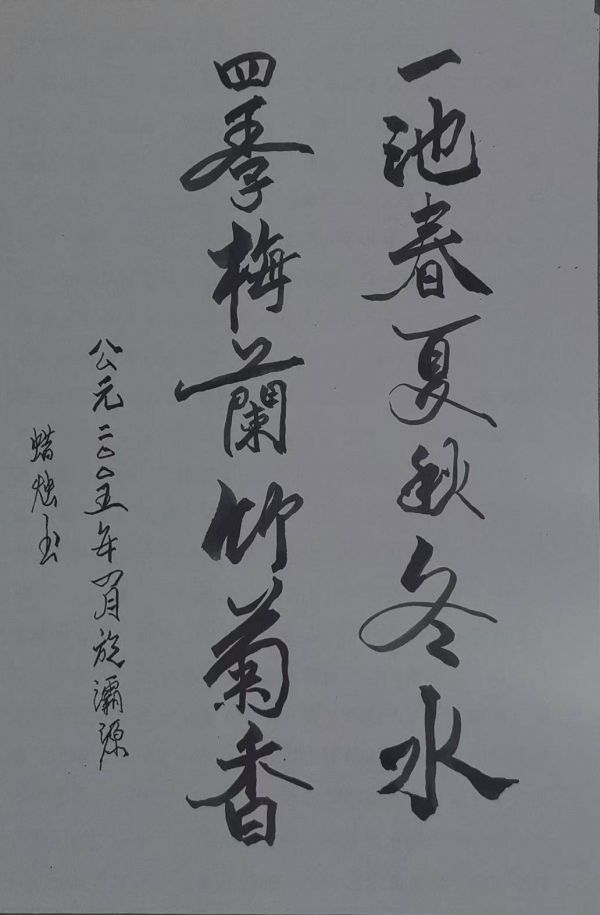 一池春夏秋冬水
四季梅蘭竹菊香
公元二〇〇五年月於源
蜡烛